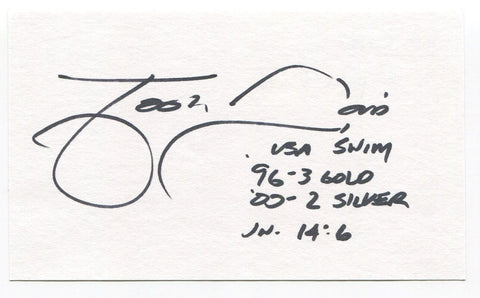 Josh Davis
USA SWIM
'96-3 GOLD
'00-2 SILVER
JN. 14:6